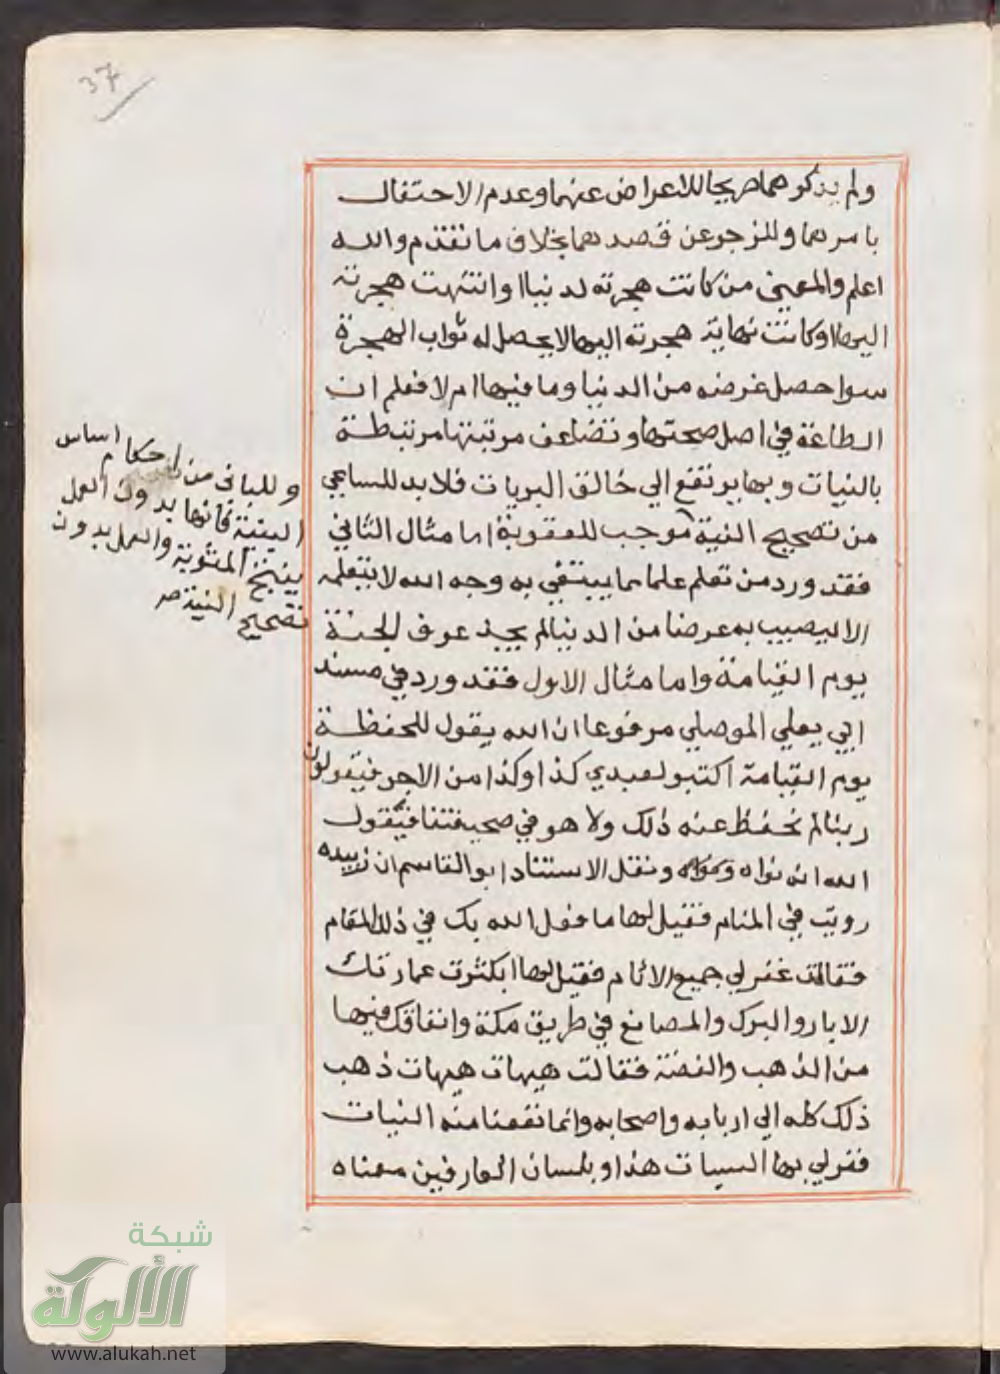 37
ولم يذكرهما صريحا للاعراض عنهما وعدم الاحتفال
بامرهما وللزجر عن قصدهما بخلاف ما تقدم والله
اعلم والمعني من كانت هجرته لدنيا وانتهت هجرته
اليها او كانت نهاية هجرته اليها لا يحصل له ثواب الهجرة
سوا حصل غرضه من الدنيا وما فيها ام لا فعلم ان
الطاعة في اصل صحتها وتضاعف مرتبتها مرتبطة
بالنيات وبها يرتفع الي خالق البريات فلا بد للساعي
من تصحيح النية موجب للعقوبة اما مثال الثاني
فقد ورد من تعلم علما مما يبتغي به وجه الله لا يتعلمه
الا ليصيب به عرضا من الدنيا لم يجد عرف الجنة
يوم القيامة واما مثال الاول فقد ورد في مسند
ابي يعلي الموصلي مرفوعا ان الله يقول للحفظة
يوم القيامة اكتبو لعبدي كذا وكذا من الاجر فيقولون
ربنا لم نحفظ عنه ذلك ولا هو في صحيفتنا فيقول
الله انه نواه ونقل الاستناد ابو القاسم ان زبيده
رويت في المنام فقيل لها ما فعل الله بك في ذلك المقام
فقالت غفر لي جميع الاثام فقيل لها ابكثرت عمارتك
الابار والبرك والمصانع في طريق مكة وانفاقك فيها
من الذهب والفضة فقالت هيهات هيهات ذهب
ذلك كله الي اربابه واصحابه وانما نفعنا منه النيات
فغفر لي بها السيات هذا وبلسان العارفين معناه
وللباني من احكام اساس
النية فانها بدون العمل
ينتج المثوبة والعمل بدون
تصحيح النية صح
شبكة
الألوكة
www.alukah.net